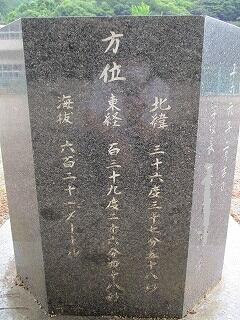 方位
北緯 三十六度三十七分五十八秒
東経 百三十九度二十六分四十八秒
海抜 六百二十一メートル